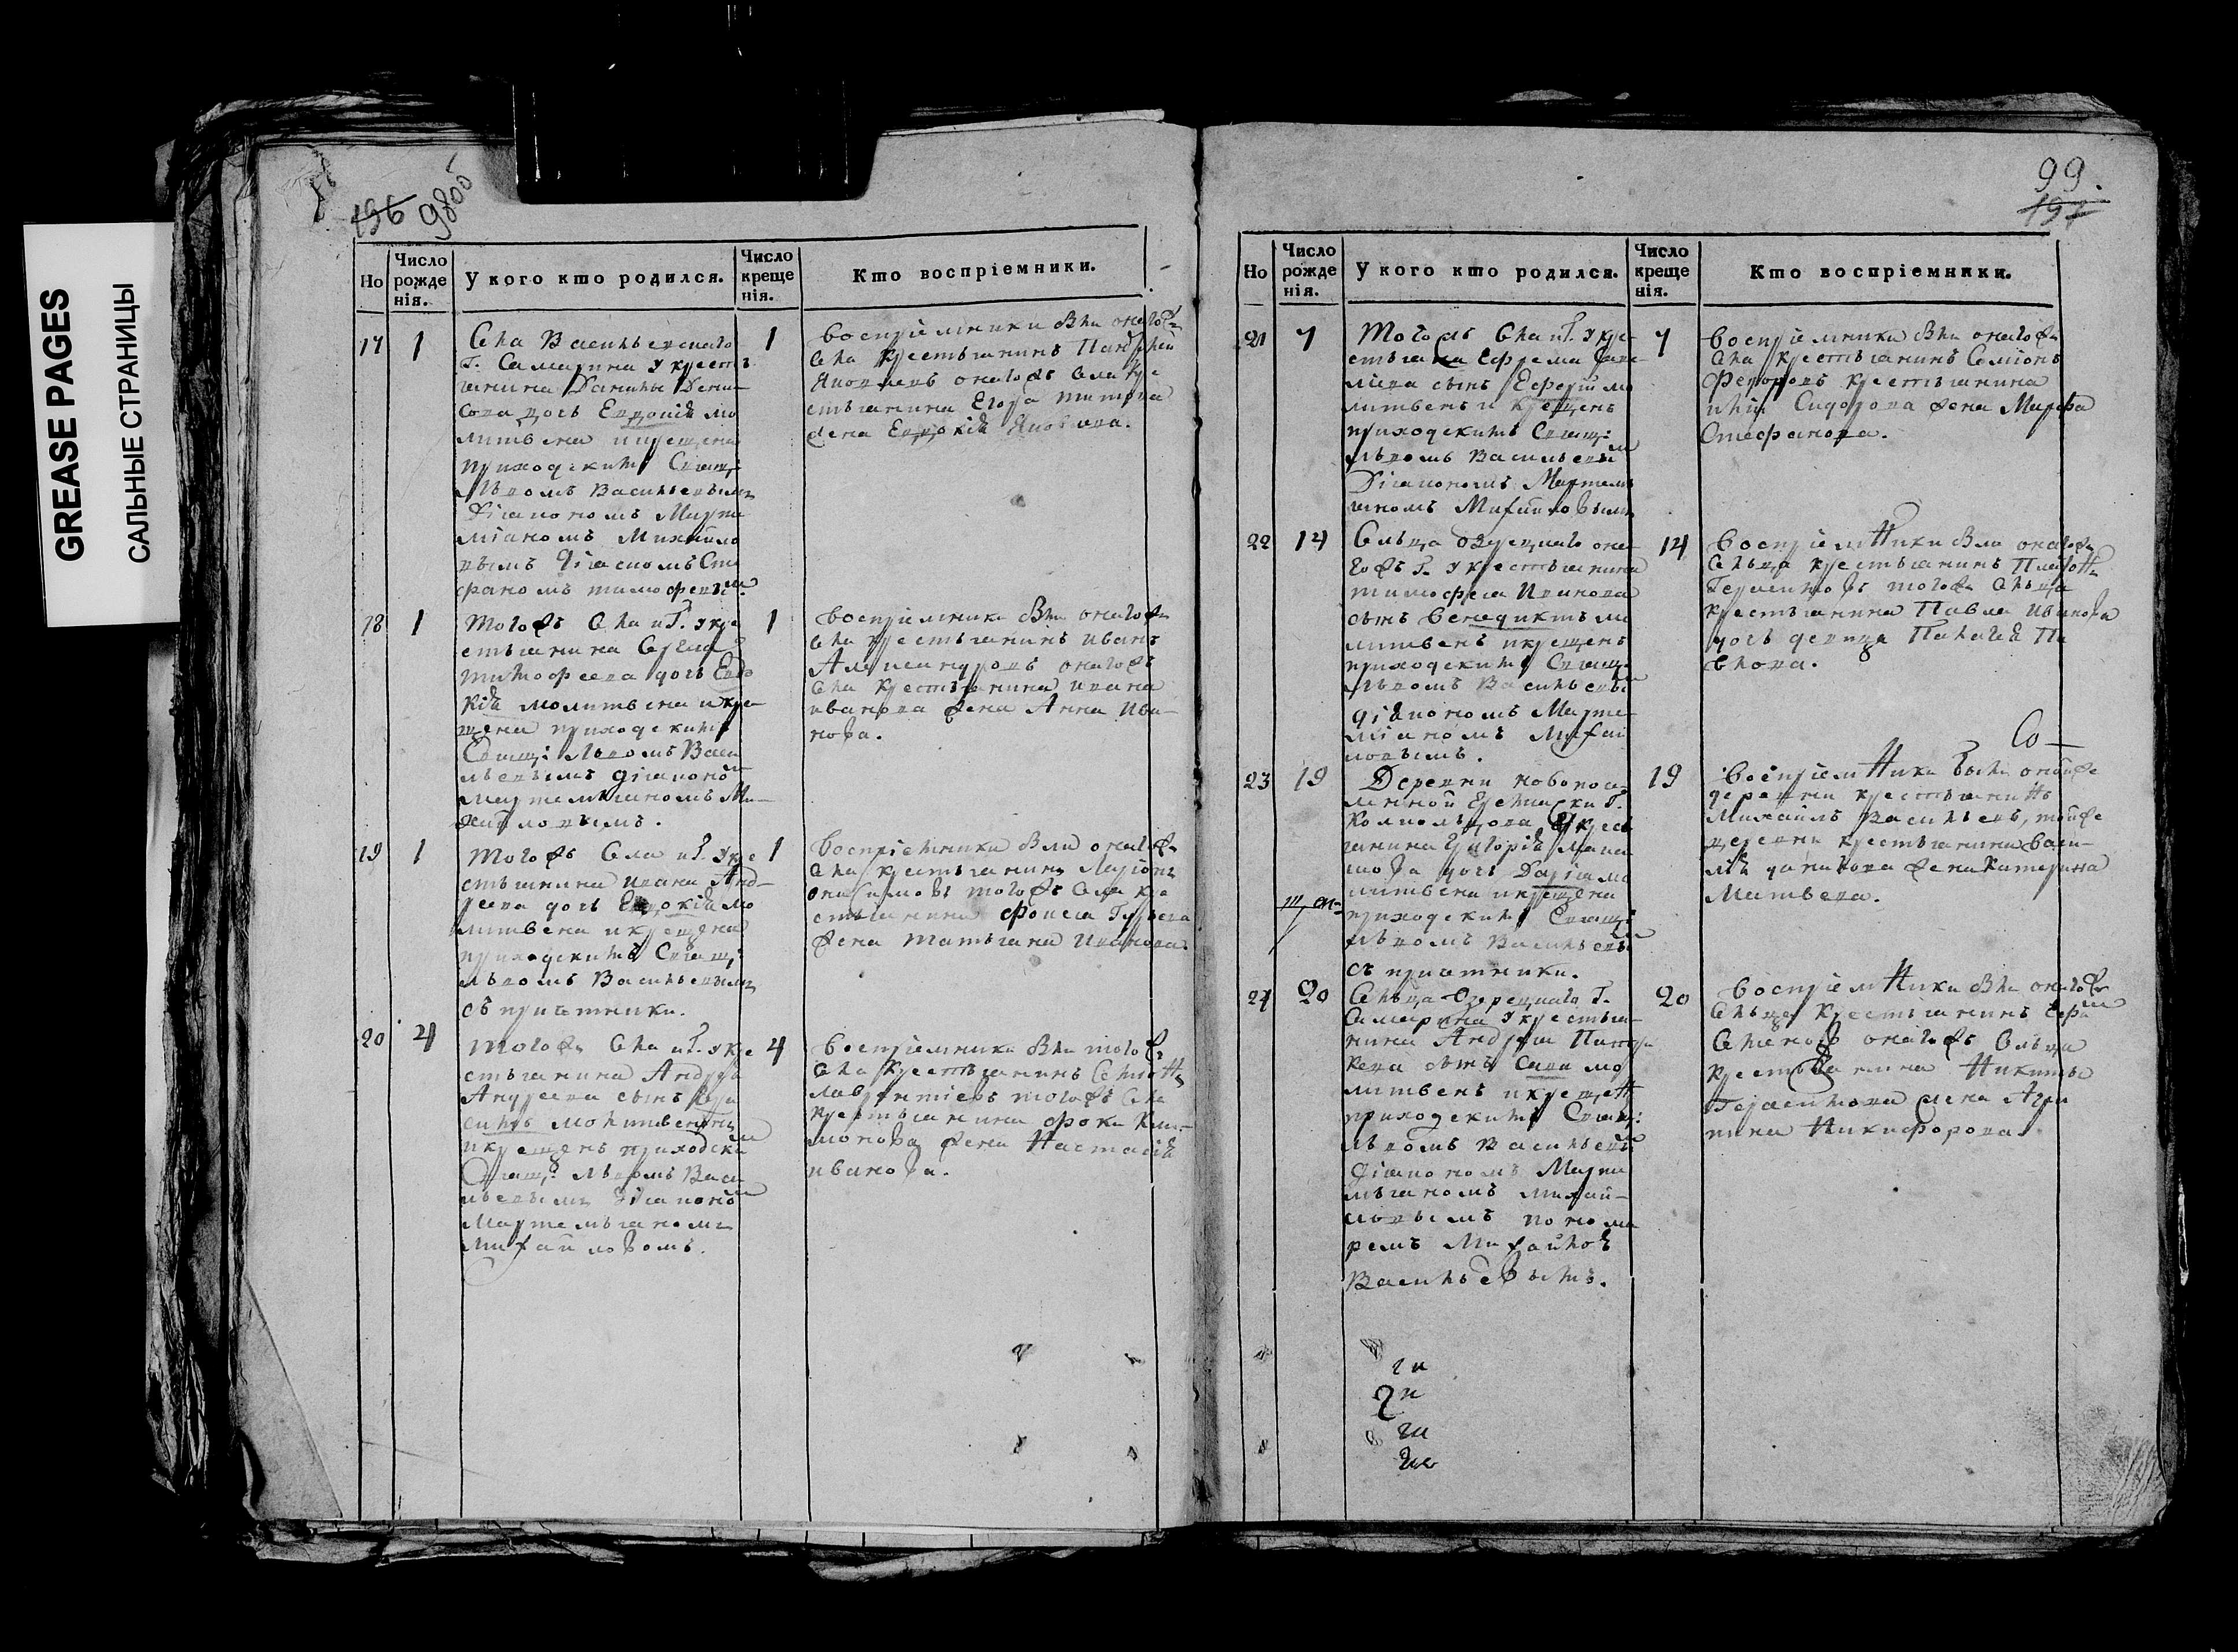 GREASE PAGES
САЛЬНЫЕ СТРАНИЦЫ
196 98об
Но
Число рожденія.
У кого кто родился.
Число крещенія.
Кто воспріемники.
17 1
Села Васильевскаго
Г. Самарина у кресть
янина Данилы Дени
сова дочь Евдокія мо
литвена и крещена
приходскимъ Свящ:
Львомъ Васильевымъ
Діакономъ Марте
міаномъ Михайло
вымъ Діячкомъ Сте
фаномъ тимофеевым
1
воспріемники были онагожъ
Села крестьянинъ
Яковлевъ онагожъ Села кре
стьянина Егора титова
жена Евдокія Яковлева.
18 1
тогожъ Села и Г. у кре
стьянина Сергея
тимофеева дочь Евдо
кія молитвена и кре
щена приходскимъ
Свящ: Львомъ Васи
льевымъ діакономъ
мартемьяномъ Ми
хайловымъ.
1
воспріемники были онагожъ
Села крестьянинъ иванъ
Александровъ онагожъ
Села крестьянина ивана
иванова жена Анна Ива
нова.
19 1
тогожъ Села и Г. у кре
стьянина ивана Анд
реева дочь Евдокія мо
литвена и крещена
приходскимъ Свящ:
Львомъ Васильевымъ
съ причетники.
1
воспріемники были онагожъ
Села крестьянинъ Ларіонъ
тогожъ Села кре
стьянина
жена татьяна иванова
20 4
тогожъ Села и Г. у кре
стьянина Андрея
Андреева сынъ
молитвенъ
и крещенъ приходски
Свящ: Львомъ Васи
льевымъ Діакономъ
Мартемьяномъ
михайловомъ.
4
воспріемники были тогожъ
Села крестьянинъ Семіонъ
лаврентіевъ тогожъ Села
крестьянина фоки Кли
монова жена Настасія
иванова.
99.
197
Но
Число рожденія.
У кого кто родился.
Число крещенія.
Кто воспріемники.
21 7
тогожъ Села и Г. у кре
стьянина Ефрема
сынъ Ефреий мо
литвенъ и крещенъ
приходскимъ Свящ:
Львомъ Васильевым
Діакономъ Мартемь
яномъ Михайловымъ
7
воспріемники были онагожъ
Села крестьянинъ Семіонъ
Федоровъ крестьянина
Сидорова жена Марфа
Стефанова.
22 14
Сельца озерецнаго она
гожъ Г. у крестьянина
тимофея Иванова
сынъ венедиктъ мо
литвенъ и крещенъ
приходскимъ Свящ:
Львомъ Васильевым
діякономъ Марте
міаномъ Михай
ловымъ.
14
воспріемники были онагожъ
Сельца крестьянинъ Платонъ
Герасимовъ тогожъ Сельца
крестьянина Павла Иванова
дочь девица Палагія Па
влова.
Со
23 19
Деревни новопоси
ленной
у кресть
янина Григорія
дочь Дарія мо
литвена и крещена
приходскимъ Свящ:
львомъ Васильевым
съ причетники.
19
воспріемники были онойже
деревни крестьянинъ
Михайлъ Васильевъ, тойже
деревни крестьянина Васи
лія данилова жена Катерина
Матвева.
24 20
Сельца Озерецнаго Г.
Самарина у крестья
нина Андрея
сынъ Сава мо
литвенъ и крещенъ
приходскимъ Свящ:
Львомъ Васильевым
Діакономъ Марте
мьяномъ михай
ловымъ понома
ремъ Михайлой
Васильевымъ.
20
воспріемники были онагожъ
Сельца крестьянинъ
Семеновъ онагожъ Сельца
крестьянина Никиты
Герасимова жена Агри
пина Никифорова.